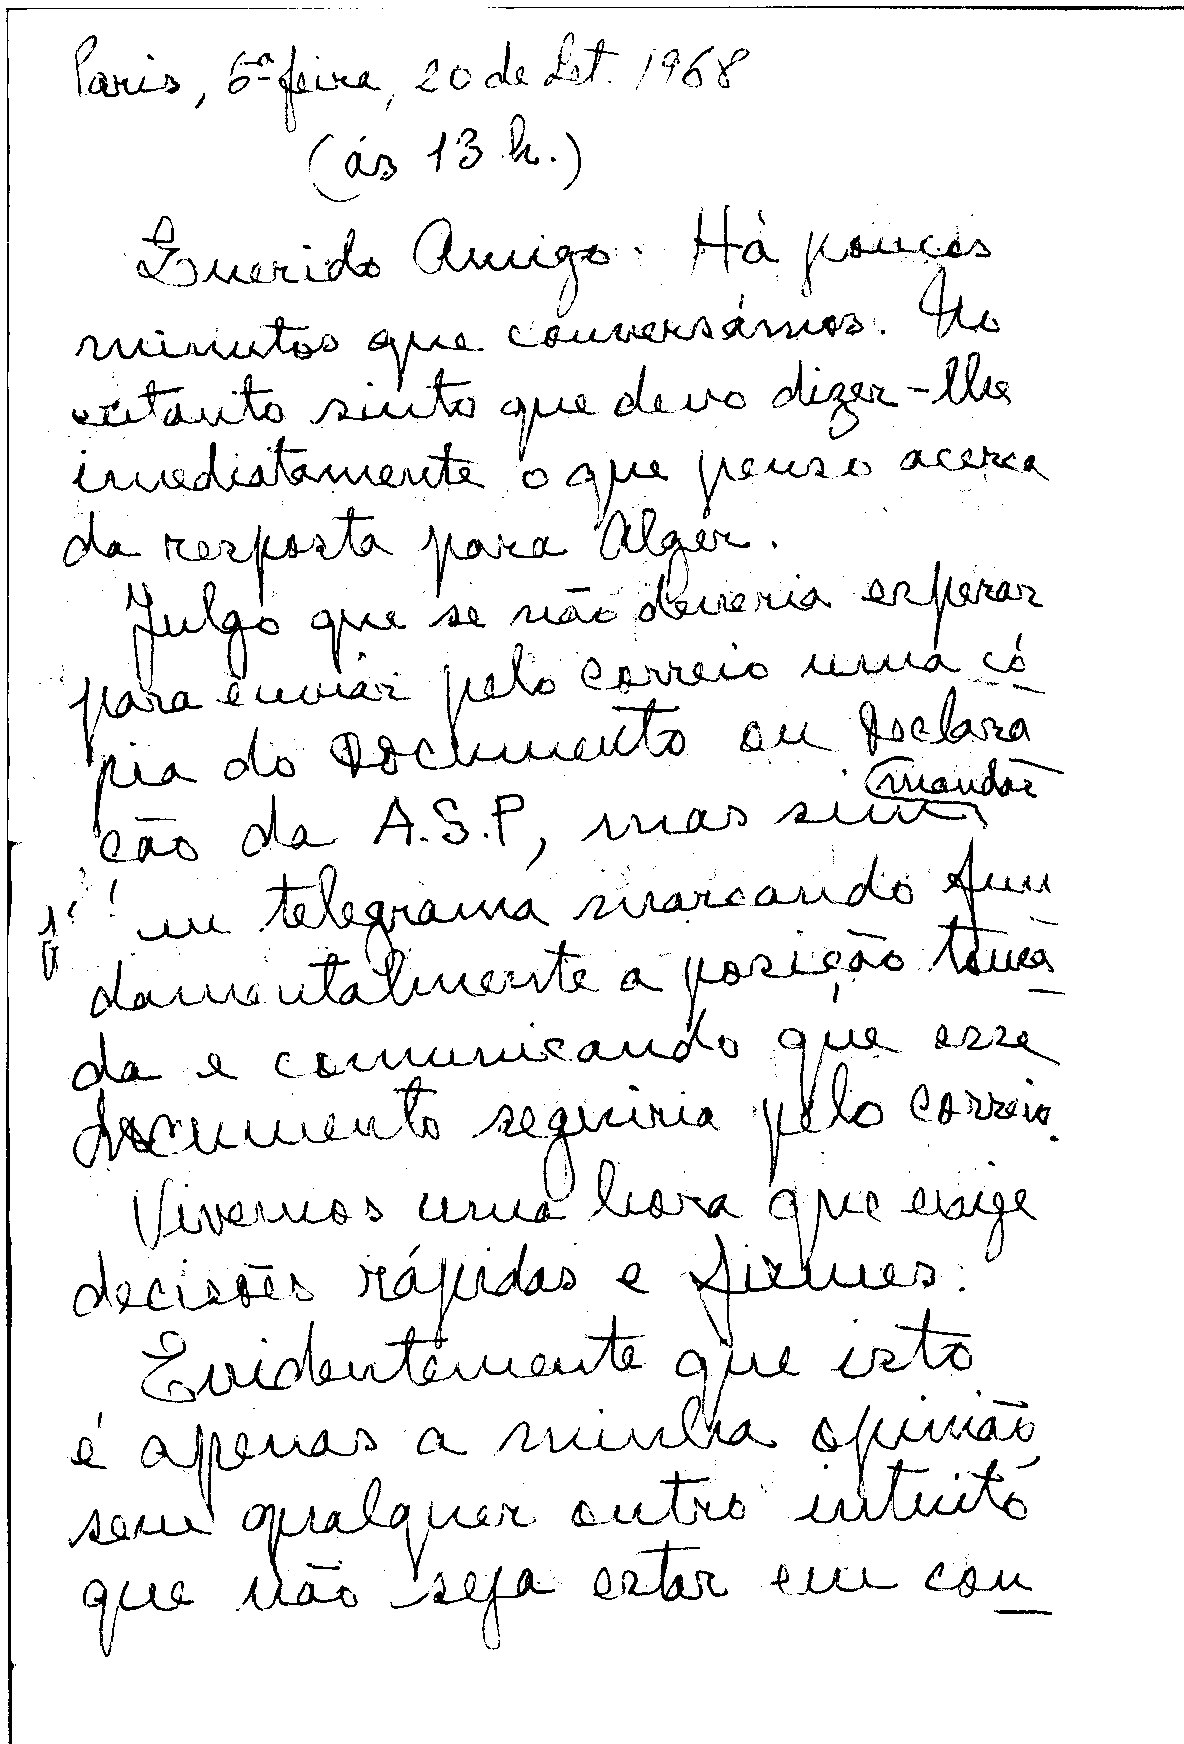 Paris, 6ª feira, 20 de Set. 1968
(ás 13 h.)
Querido Amigo. Há poucos
minutos que conversámos. No
entanto sinto que devo dizer-lhe
imediatamente o que penso acerca
da resposta para Alger.
Julgo que se não deveria esperar
para enviar pelo correio uma có
pia do Documento ou Declara
mandar
ção da A.S.P, mas sim
um telegrama marcando fun
damentalmente a posição toma
da e comunicando que esse
documento seguiria pelo correio.
Vivemos uma hora que exige
decisões rápidas e firmes.
Evidentemente que isto
é apenas a minha opinião
sem qualquer outro intuito
que não seja estar em con